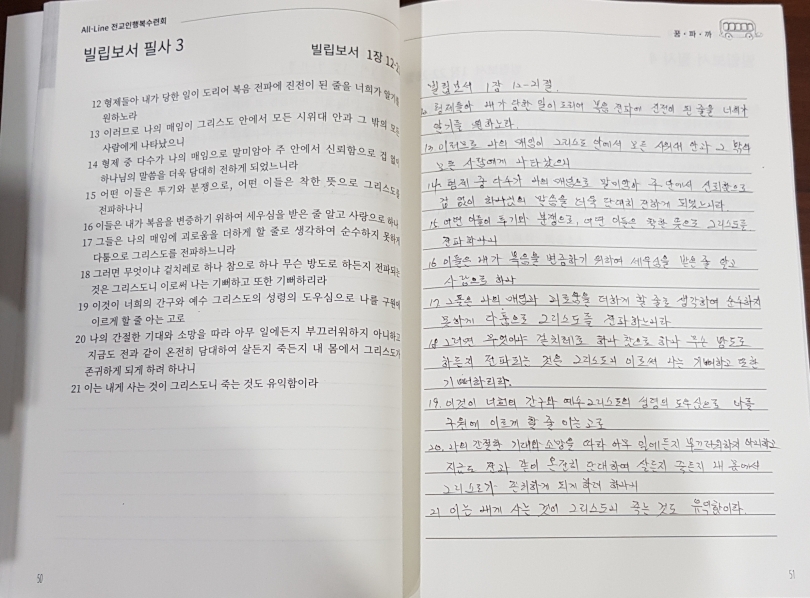 All-Line 전교인행복수련회
빌립보서 필사 3
빌립보서 1장 12-2
12 형제들아 내가 당한 일이 도리어 복음 전파에 진전이 된 줄을 너희가 알기를
원하노라
13 이러므로 나의 매임이 그리스도 안에서 모든 시위대 안과 그 밖의 모든
사람에게 나타났으니
14 형제 중 다수가 나의 매임으로 말미암아 주 안에서 신뢰함으로 겁 없이
하나님의 말씀을 더욱 담대히 전하게 되었느니라
15 어떤 이들은 투기와 분쟁으로, 어떤 이들은 착한 뜻으로 그리스도를
전파하나니
16 이들은 내가 복음을 변증하기 위하여 세우심을 받은 줄 알고 사랑으로 하나
17 그들은 나의 매임에 괴로움을 더하게 할 줄로 생각하여 순수하지 못하게
다툼으로 그리스도를 전파하느니라
18 그러면 무엇이냐 겉치레로 하나 참으로 하나 무슨 방도로 하든지 전파되는
것은 그리스도니 이로써 나는 기뻐하고 또한 기뻐하리라
19 이것이 너희의 간구와 예수 그리스도의 성령의 도우심으로 나를 구원에
이르게 할 줄 아는 고로
20 나의 간절한 기대와 소망을 따라 아무 일에든지 부끄러워하지 아니하고
지금도 전과 같이 온전히 담대하여 살든지 죽든지 내 몸에서 그리스도가
존귀하게 되게 하려 하나니
21 이는 내게 사는 것이 그리스도니 죽는 것도 유익함이라
50
꿈·파·까
빌립보서 1장 12-21절
형제들아 내가 당한 일이 도리어 복음 전파에 진전이 된 줄을 너희가
알기를 원하노라
13 이러므로 나의 매임이 그리스도 안에서 모든 시위대 안과 그 밖의
모든 사람에게 나타났으니
14 형제 중 다수가 나의 매임으로 말미암아 주 안에서 신뢰함으로
겁 없이 하나님의 말씀을 더욱 담대히 전하게 되었느니라
15 어떤 이들이 투기와 분쟁으로, 어떤 이들은 착한 뜻으로 그리스도를
전파하나니
16 이들은 내가 복음을 변증하기 위하여 세우심을 받은 줄 알고
사랑으로 하나
17 그들은 나의 매임에 괴로움을 더하게 할 줄로 생각하여 순수하지
못하게 다툼으로 그리스도를 전파하느니라
18 그러면 무엇이냐 겉치레로 하나 참으로 하나 무슨 방도로
하든지 전파되는 것은 그리스도니 이로써 나는 기뻐하고 또한
기뻐하리라.
19. 이것이 너희의 간구와 예수그리스도의 성령의 도우심으로 나를
구원에 이르게 할 줄 아는고로
20. 나의 간절한 기대와 소망을 따라 아무 일에든지 부끄러워하지 아니하고
지금도 전과 같이 온전히 담대하여 살든지 죽든지 내 몸에서
그리스도가 존귀하게 되게 하려 하나니
21 이는 내게 사는 것이 그리스도니 죽는 것도 유익함이라.
51